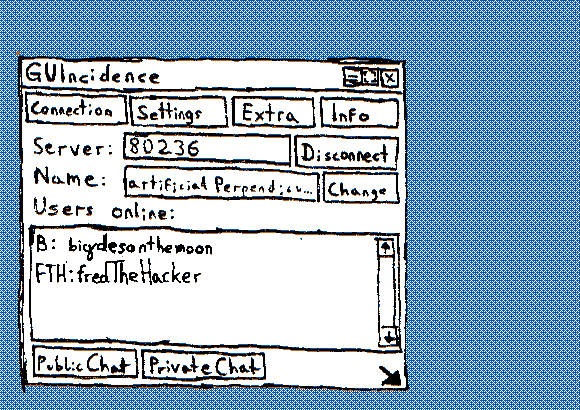 GUIncidence
Connection Settings Extra Info
Server: 80236 Disconnect
Name: artificial Perpendicu... Change
Users online:
B: bigdesonthemoon
FTH: fredTheHacker
Public Chat Private Chat